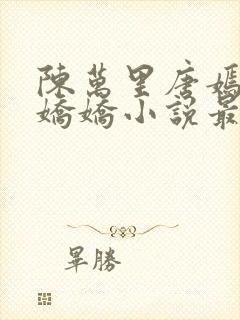 陳萬里唐嫣
嬌嬌小說最
畢勝